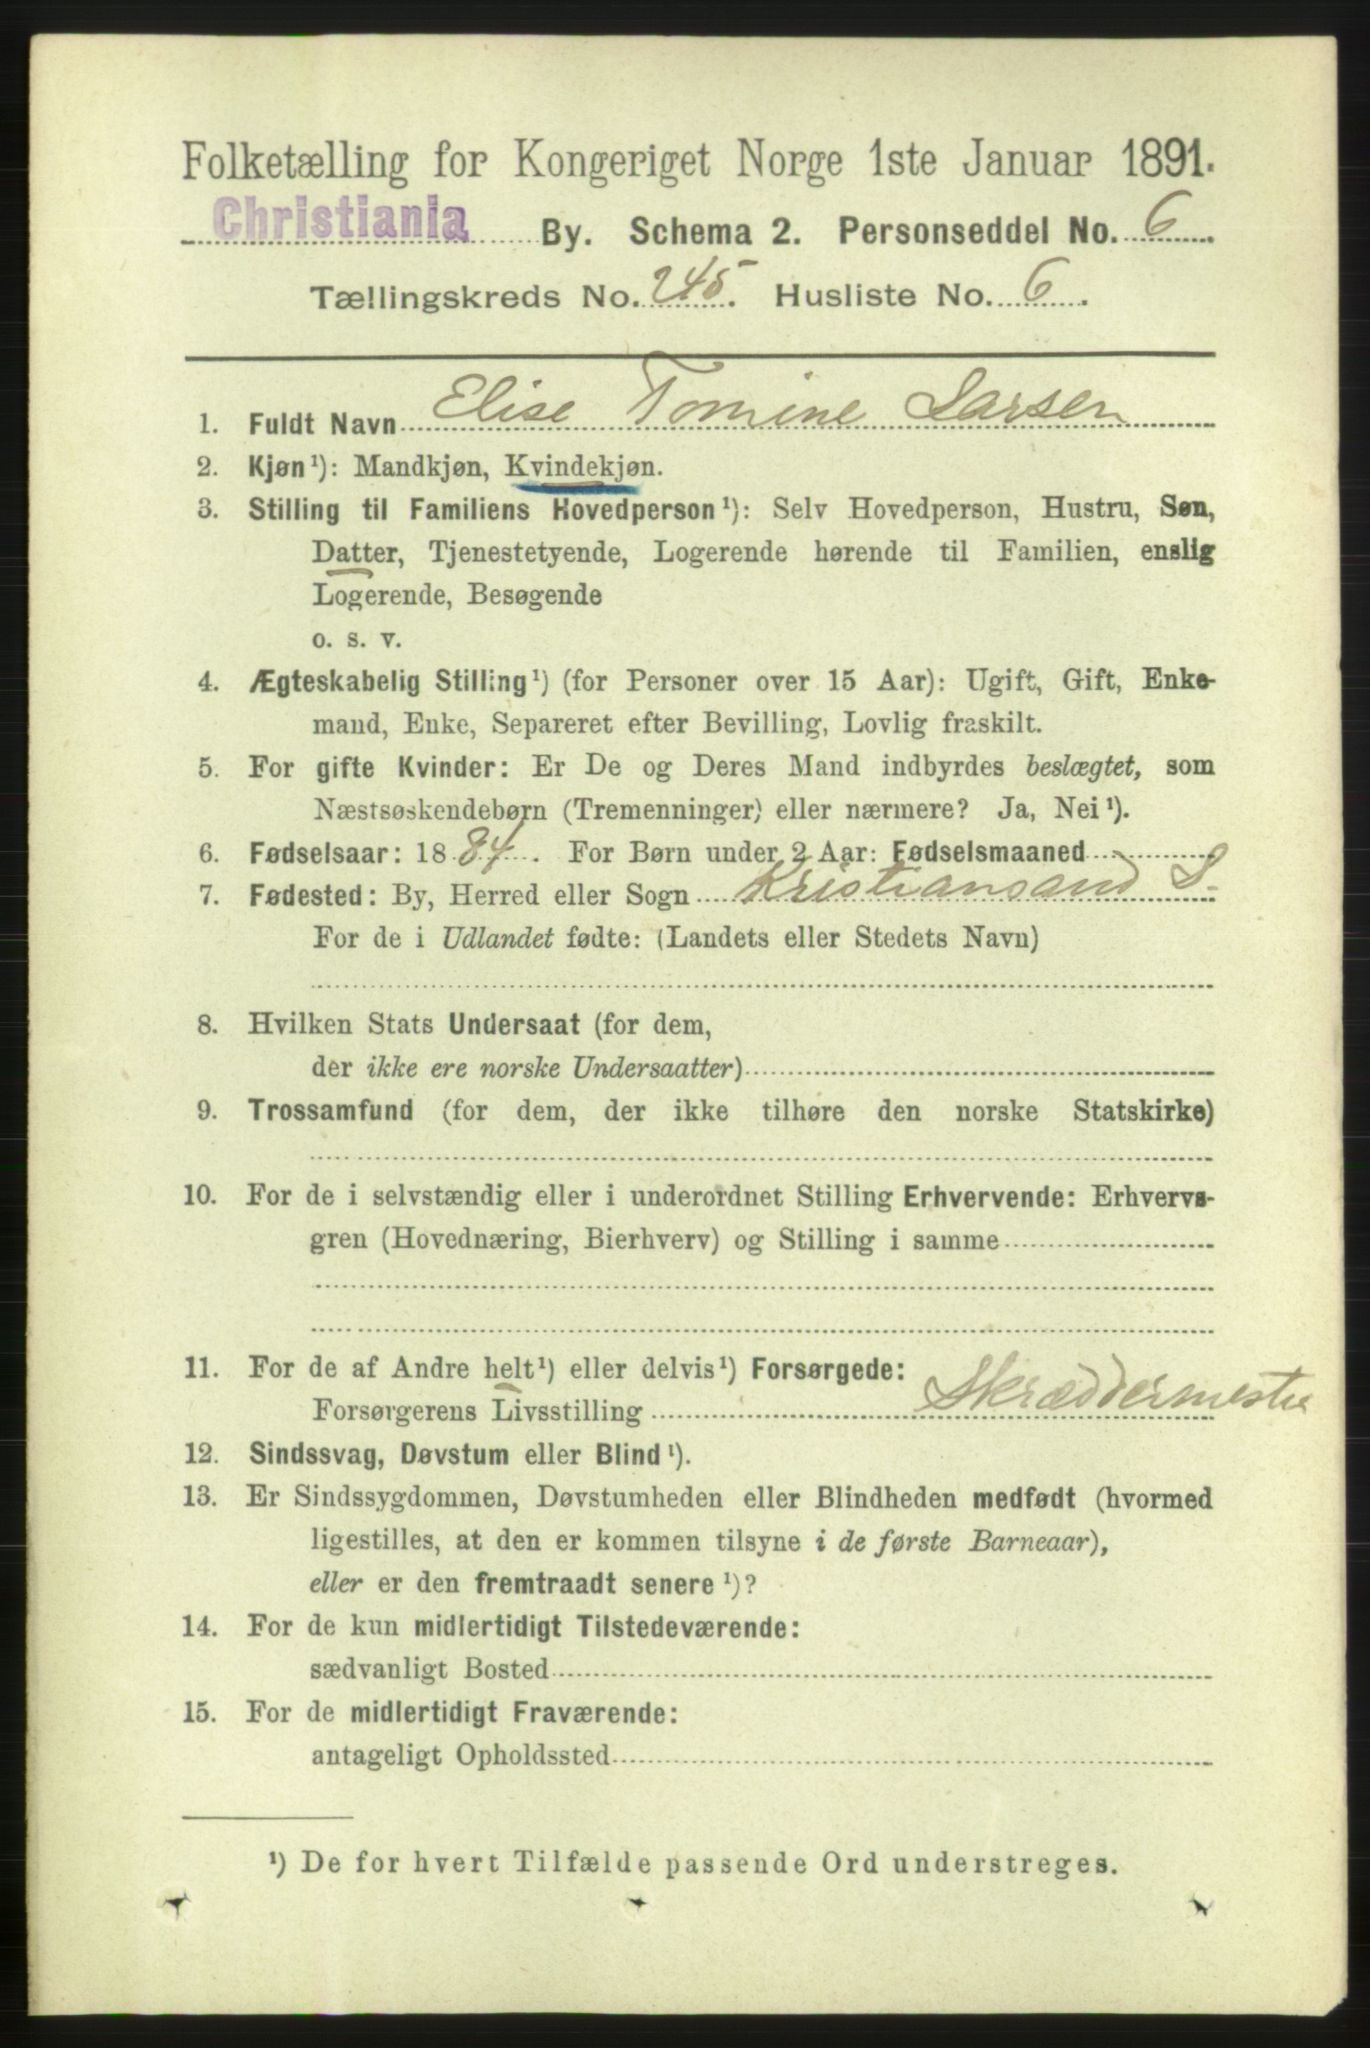 Folketælling for Kongeriget Norge 1ste Januar 1891.
Christiania By. Schema 2. Personseddel No. 6.
Tællingskreds No. 245. Husliste No. 6.
1. Fuldt Navn Elise Tomine Larsen
2. Kjøn¹): Mandkjøn, Kvindekjøn.
3. Stilling til Familiens Hovedperson¹): Selv Hovedperson, Hustru, Søn,
Datter, Tjenestetyende, Logerende hørende til Familien, enslig
Logerende, Besøgende
o. s. v.
4. Ægteskabelig Stilling¹) (for Personer over 15 Aar): Ugift, Gift, Enke-
mand, Enke, Separeret efter Bevilling, Lovlig fraskilt.
5. For gifte Kvinder: Er De og Deres Mand indbyrdes beslægtet, som
Næstsøskendebørn (Tremenninger) eller nærmere? Ja, Nei¹).
6. Fødselsaar: 1884. For Børn under 2 Aar: Fødselsmaaned
7. Fødested: By, Herred eller Sogn Kristiansand S.
For de i Udlandet fødte: (Landets eller Stedets Navn)
8. Hvilken Stats Undersaat (for dem,
der ikke ere norske Undersaatter)
9. Trossamfund (for dem, der ikke tilhøre den norske Statskirke)
10. For de i selvstændig eller i underordnet Stilling Erhvervende: Erhvervs-
gren (Hovednæring, Bierhverv) og Stilling i samme
11. For de af Andre helt¹) eller delvis¹) Forsørgede:
Forsørgerens Livsstilling Skræddermester
12. Sindssvag, Døvstum eller Blind¹).
13. Er Sindssygdommen, Døvstumheden eller Blindheden medfødt (hvormed
ligestilles, at den er kommen tilsyne i de første Barneaar),
eller er den fremtraadt senere¹)?
14. For de kun midlertidigt Tilstedeværende:
sædvanligt Bosted
15. For de midlertidigt Fraværende:
antageligt Opholdssted
¹) De for hvert Tilfælde passende Ord understreges.